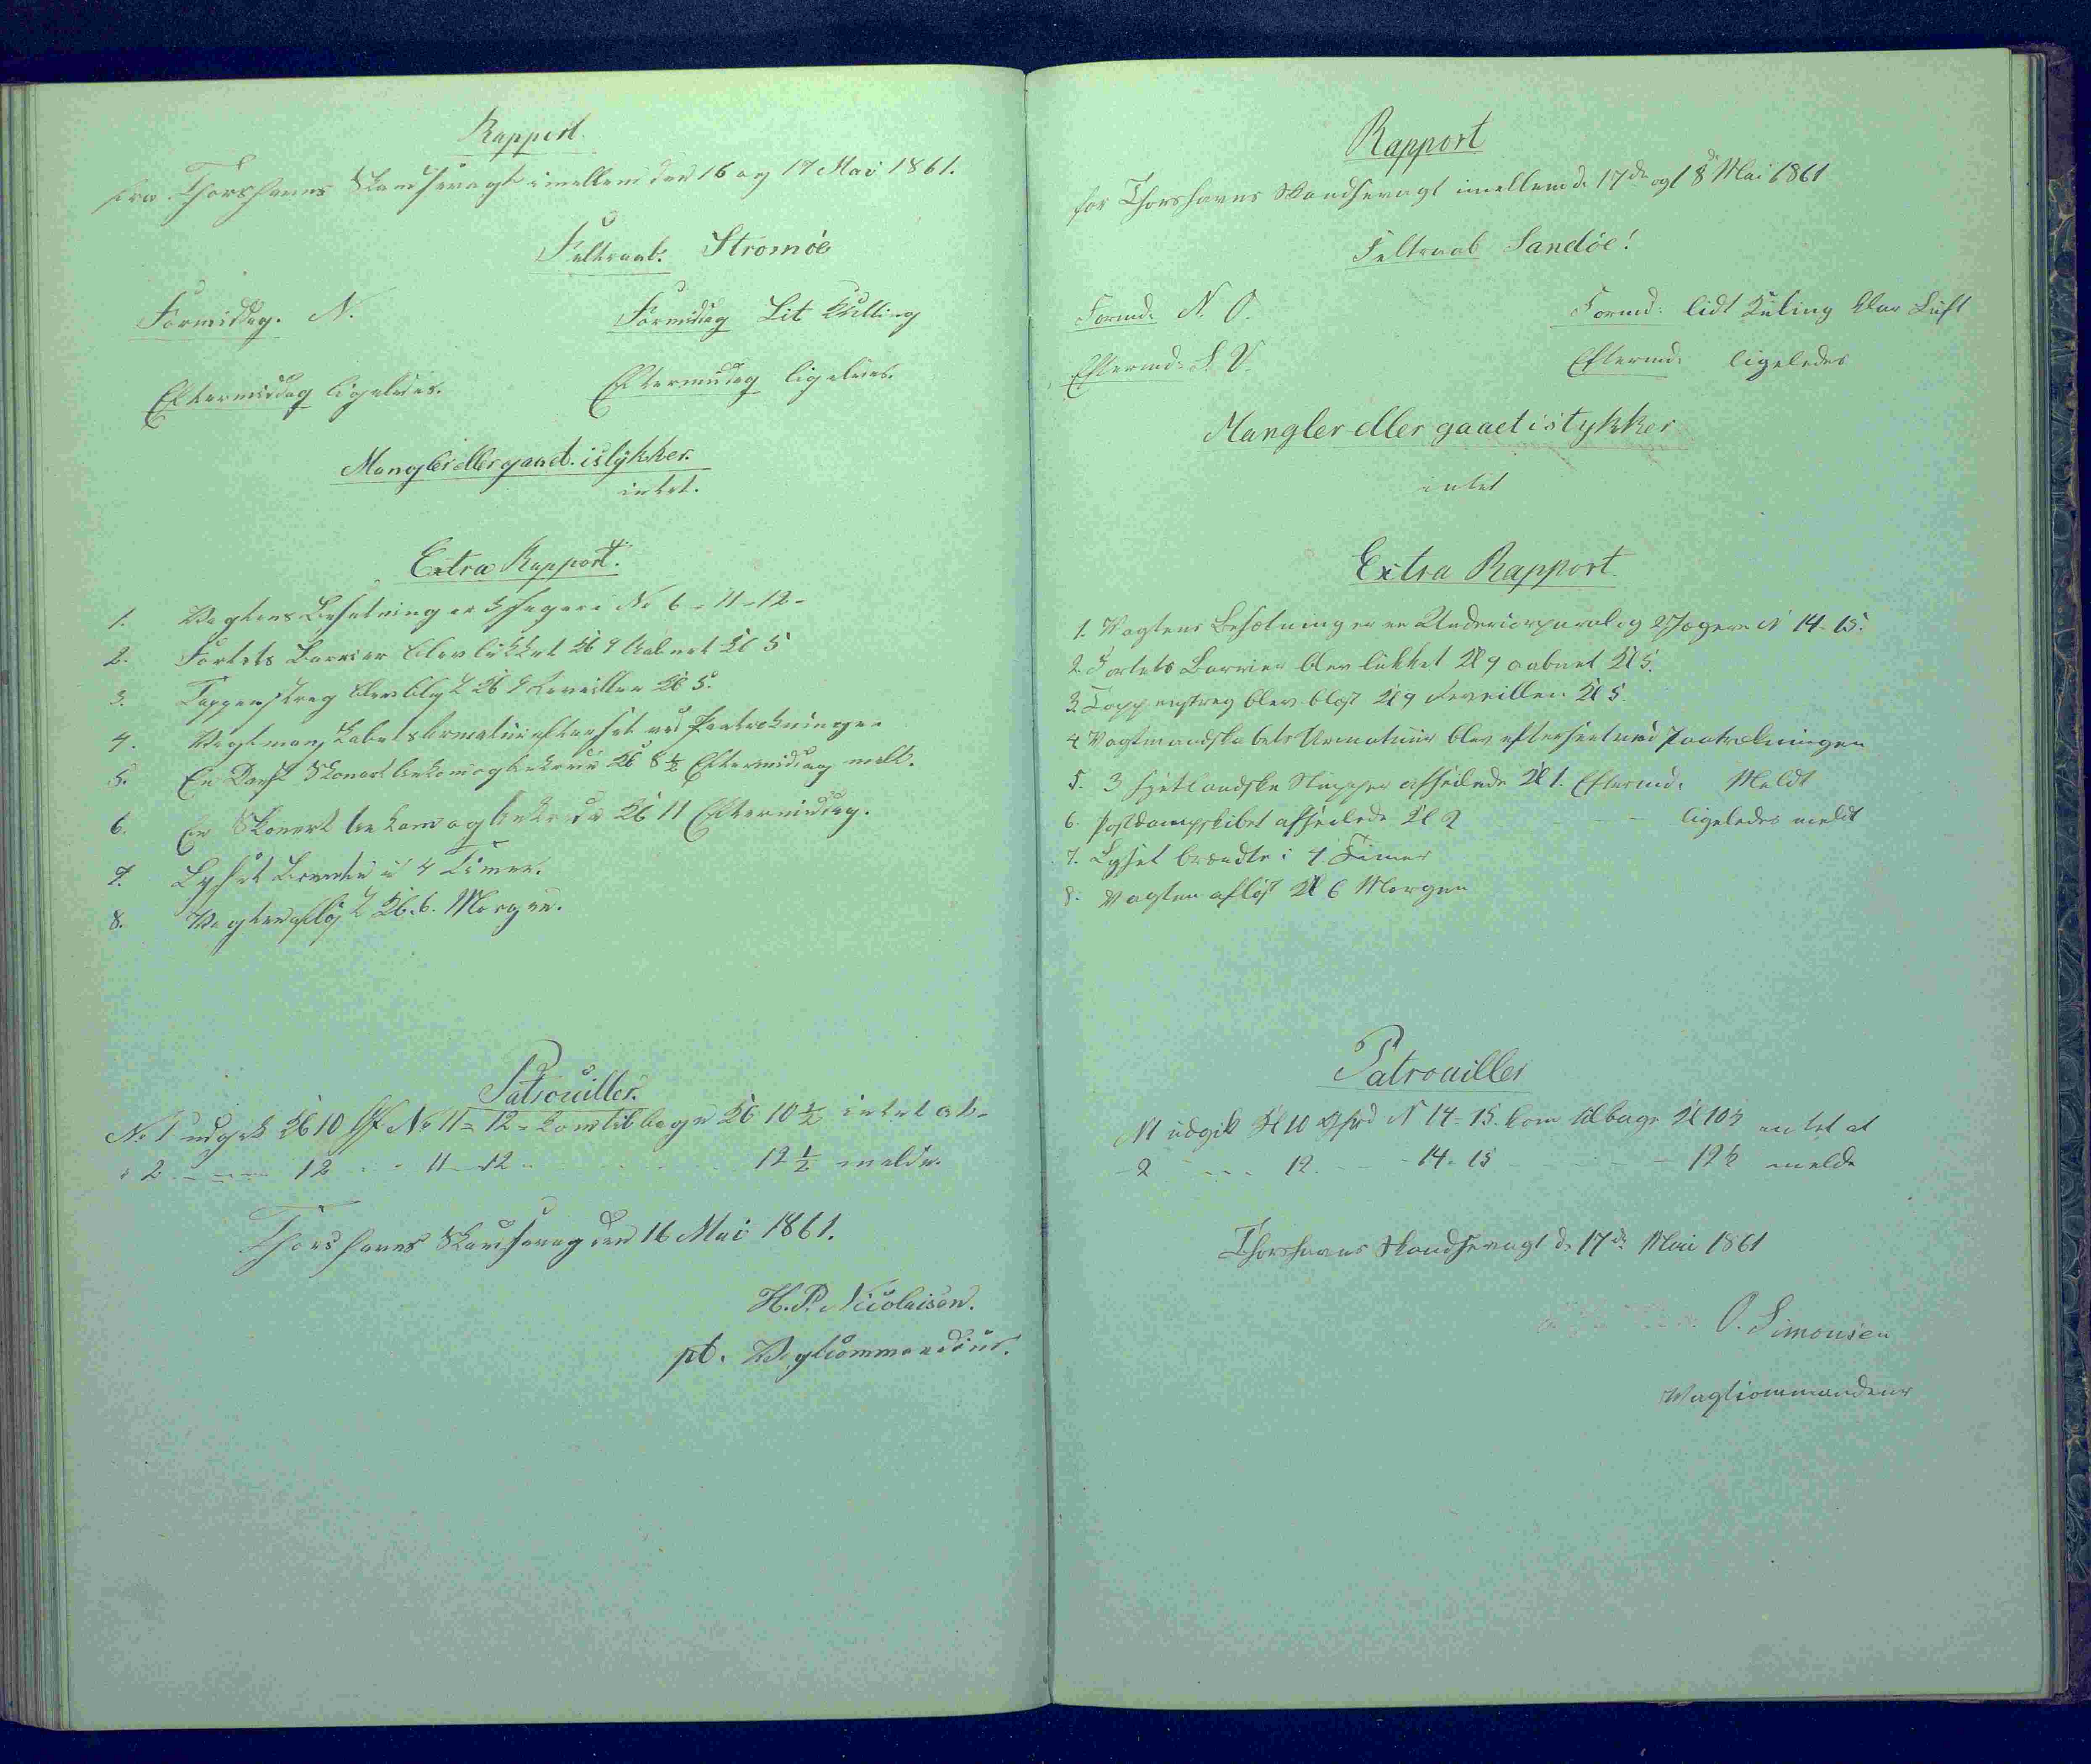 Rapport
fra Thorshavns Skandsevagt imellem den 16 og 17 Mai 1861.
Feltraab: Stromöe
Formiddag. N.
Formiddag Lit Kulling
Eftermiddag ligeledes.
Eftermiddag ligeledes.
Mangler eller gaaet istykker.
intet.
Extra Rapport.
1. Vagtens Besetning er 3 Jegere No 6 - 11 - 12 -
2. Fortets Barrier blev lukket Kl 9 Aabnet Kl 5
3. Tappenstreg blev blest Kl 9 Reveillen Kl 5.
4. Vagtmandskabets Armatuir efterset ved Paatrekningen
5. En Dansk Skonert Ankom og Ankrede Kl 8 ½ Eftermiddag melt.
6. En Skonert Ankom og Ankrede Kl 11 Eftermiddag.
7. Lyset Brente i 4 Timer.
8. Vagten aflöst Kl 6. Morgen.
Patrouiller.
No 1 udgik Kl 10 No 11 = 12 = kom tilbage Kl 10 ½ intet at-
" 2 - - - - 12 - - 11 - 12 - - - - 12 ½ melde.
Thorshavns Skansevagt den 16 Mai 1861.
H. P. Nicolaisen.
pt. Vagtcommandeur.
Rapport
for Thorshavns Skandsevagt imellem d. 17de og 18de Mai 1861
Feltraab Sandöe!
Formd: N. O.
Formd: lidt Kuling klar Luft
Eftermd: S. V.
Eftermd: ligeledes
Mangler eller gaaet istykker
intet
Extra Rapport.
1. Vagtens Besætning er en Undercorporal og 2 Jægere N 14 - 15.
2. Fortets Barrier blev lukket Kl 9 aabnet Kl 5.
3. Tappenstreg blev blæst Kl 9 Reveillen Kl 5.
4 Vagtmandskabets Armatuur blev efterseet ved Paatrækningen
5. 3 hjetlandske Slupper afseilede Kl 1. Eftermd. Meldt
6. Postdampskibet afseilede Kl 2 - - ligeledes meldt
7. Lyset brændte i 4 Timer
8. Vagten aflöst Kl 6 Morgen
Patrouiller
N1 udgik Kl 10 N 14 = 15. kom tilbage Kl 10½ intet at
- 2 - - - - 12. - - - 14 = 15 - - - - 12½ melde
Thorshavns Skandsevagt d. 17de Mai 1861
O. Simonsen
Vagtcommandeur